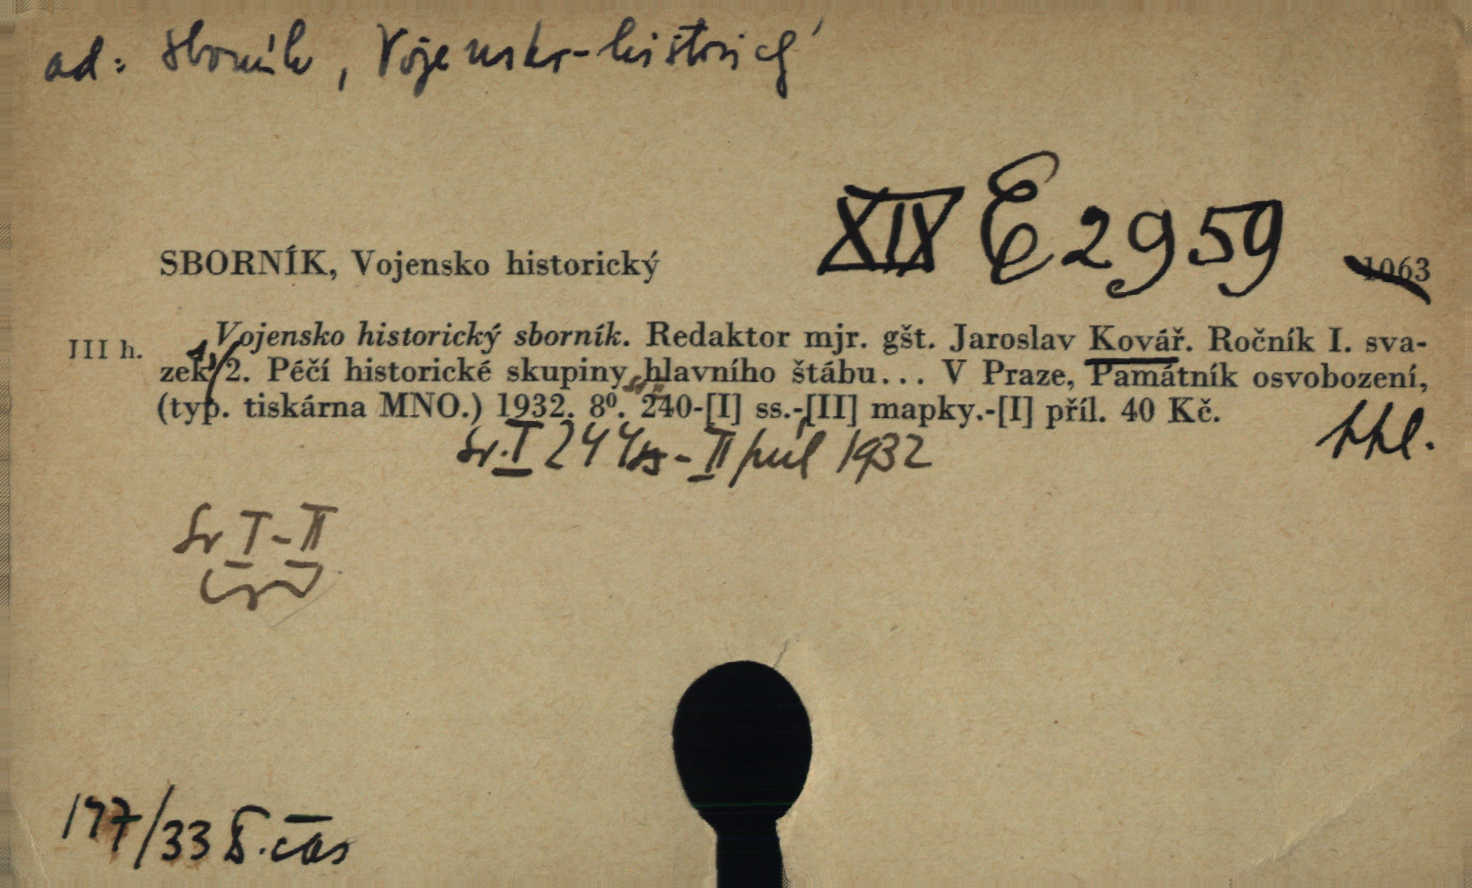 ad: Sborník, Vojensko-historický
XIX E 2959
SBORNÍK, Vojensko historický
1063
III h. Vojensko historický sborník. Redaktor mjr. gšt. Jaroslav Kovář. Ročník I. sva-
zek 1/2. Péčí historické skupiny hlavního štábu... V Praze, Památník osvobození,
(typ. tiskárna MNO.) 1932. 8⁰. 240-[I] ss.-[II] mapky.-[I] příl. 40 Kč.
Sv. I 244 ss - II příl 1932
Sv I-II
177/33 čas